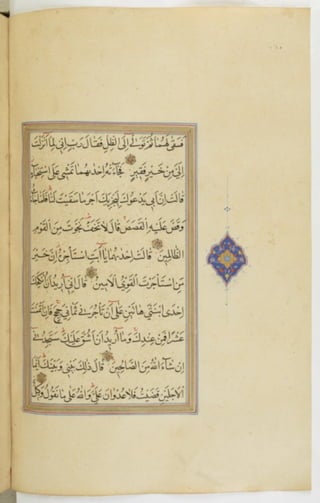 فَسَقَىٰ لَهُمَا ثُمَّ تَوَلَّىٰ إِلَى الظِّلِّ فَقَالَ رَبِّ إِنِّي لِمَا أَنْزَلْتَ
إِلَيَّ مِنْ خَيْرٍ فَقِيرٌ فَجَاءَتْهُ إِحْدَاهُمَا تَمْشِي عَلَى اسْتِحْيَاءٍ
قَالَتْ إِنَّ أَبِي يَدْعُوكَ لِيَجْزِيَكَ أَجْرَ مَا سَقَيْتَ لَنَا فَلَمَّا جَاءَهُ
وَقَصَّ عَلَيْهِ الْقَصَصَ قَالَ لَا تَخَفْ نَجَوْتَ مِنَ الْقَوْمِ
الظَّالِمِينَ قَالَتْ إِحْدَاهُمَا يَا أَبَتِ اسْتَأْجِرْهُ إِنَّ خَيْرَ
مَنِ اسْتَأْجَرْتَ الْقَوِيُّ الْأَمِينُ قَالَ إِنِّي أُرِيدُ أَنْ أُنْكِحَكَ
إِحْدَى ابْنَتَيَّ هَاتَيْنِ عَلَىٰ أَنْ تَأْجُرَنِي ثَمَانِيَ حِجَجٍ فَإِنْ أَتْمَمْتَ
عَشْرًا فَمِنْ عِنْدِكَ وَمَا أُرِيدُ أَنْ أَشُقَّ عَلَيْكَ سَتَجِدُنِي
إِنْ شَاءَ اللَّهُ مِنَ الصَّالِحِينَ قَالَ ذَٰلِكَ بَيْنِي وَبَيْنَكَ أَيَّمَا
الْأَجَلَيْنِ قَضَيْتُ فَلَا عُدْوَانَ عَلَيَّ وَاللَّهُ عَلَىٰ مَا نَقُولُ وَكِيلٌ